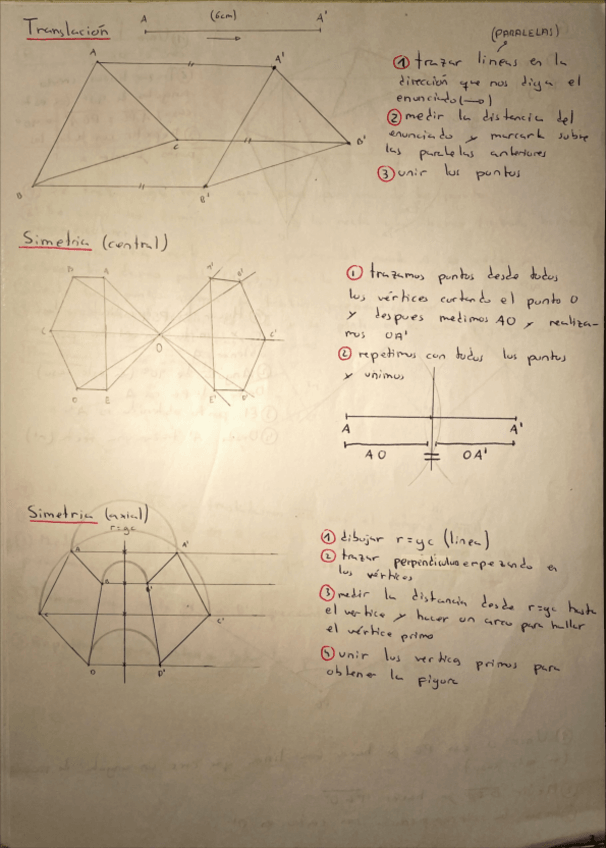 Translación
A (6cm) A'
(PARALELAS)
① trazar lineas en la
dirección que nos diga el
enunciado (→)
② medir la distancia del
enunciado y marcarla sobre
las paralelas anteriores
③ unir los puntos
A A'
C B'
B B'
Simetria (central)
① trazamos puntos desde todos
los vértices cortando el punto O
y despues medimos AO y realiza-
mos OA'
② repetimos con todos los puntos
y unimos
A A'
AO OA'
B A
C O C'
D E E' D'
Simetria (axial)
r=yc
① dibujar r=yc (linea)
② trazar perpendiculos empezando en
los vértices
③ medir la distancia desde r=yc hasta
el vertice y hacer un arco para hallar
el vértice primo
unir los vertices primos para
obtener la figura
A A'
B B'
C'
D D'